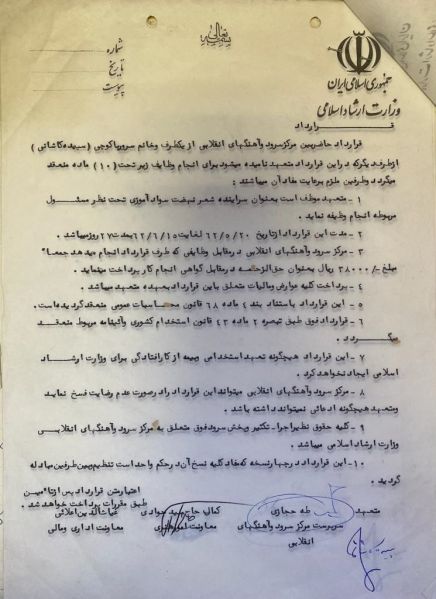 بسمه تعالی
شماره
تاریخ
پیوست
جمهوری اسلامی ایران
وزارت ارشاد اسلامی
قرارداد
قرارداد حاضر بین مرکز سرود و آهنگهای انقلابی از یکطرف و خانم سرور باکوچی (سپیده کاشانی)
از طرف دیگر که در این قرارداد متعهد نامیده میشود برای انجام وظایف زیر تحت (۱۰) ماده منعقد
میگردد و طرفین ملزم برعایت مفاد آن میباشند :
۱ - متعهد موظف است بعنوان سراینده شعر نهضت سواد آموزی تحت نظر مسئول
مربوطه انجام وظیفه نماید .
۲ - مدت این قرارداد از تاریخ ۶۲/۵/۲۰ لغایت ۶۲/۶/۱۵ بمدت ۲۷ روز میباشد .
۳ - مرکز سرود و آهنگهای انقلابی در مقابل وظایفی که طرف قرارداد انجام میدهد جمعا"
مبلغ -/۳۸۰۰۰ ریال بعنوان حق الزحمه در مقابل گواهی انجام کار پرداخت مینماید .
۴ - پرداخت کلیه عوارض و مالیات متعلق باین قرارداد بعهده متعهد میباشد .
۵ - این قرارداد باستناد بند ۴ ماده ۶۸ قانون محاسبات عمومی منعقد گردیده است .
۶ - قرارداد فوق طبق تبصره ۲ ماده ۴۳ قانون استخدام کشوری و آئیننامه مربوط منعقد
میگردد .
۷ - این قرارداد هیچگونه تعهد استخدامی و بیمه از کار افتادگی برای وزارت ارشاد
اسلامی ایجاد نخواهد کرد .
۸ - مرکز سرود و آهنگهای انقلابی میتواند این قرارداد را در صورت عدم رضایت فسخ نماید
و متعهد هیچگونه ادعائی نمیتواند داشته باشد .
۹ - کلیه حقوق نظیر اجرا - تکثیر و پخش سرود فوق متعلق به مرکز سرود و آهنگهای انقلابی
وزارت ارشاد اسلامی میباشد .
۱۰ - این قرارداد در چهار نسخه که مفاد کلیه نسخ آن در حکم واحد است تنظیم و بین طرفین مبادله
گردید .
اعتبار متن قرارداد پس از تامین
طبق مقررات پرداخت خواهد شد .
متعهد
طه حجازی
سرپرست مرکز سرود و آهنگهای
انقلابی
کمال حاج سید جوادی
معاونت امور هنری
غیاثالدین اعلائی
معاونت اداری و مالی